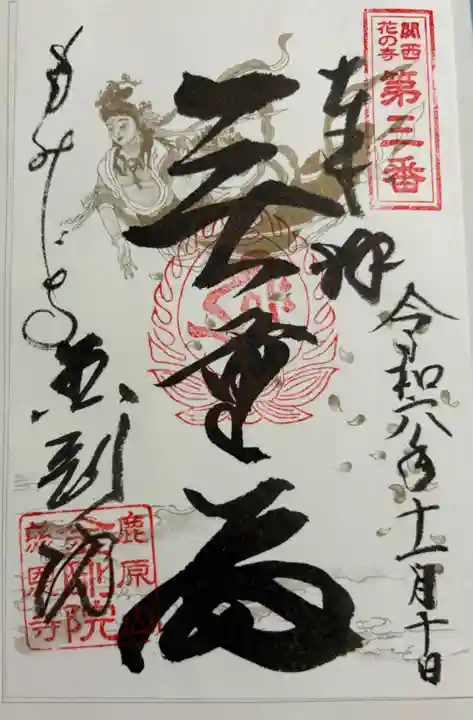 関西
花の寺
第三番
奉拝
令和六年十一月十日
無量寿
もみじ寺
金剛院
鹿原山
金剛院
慈恩寺